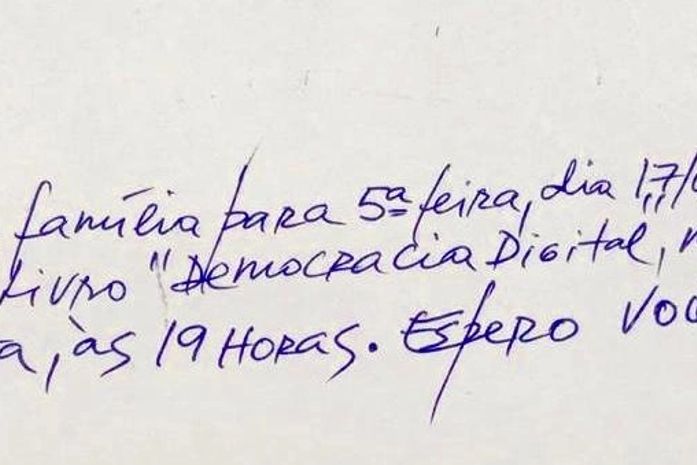 família para 5ª feira, dia 17/
livro "Democracia Digital,"
às 19 HORAS. Espero